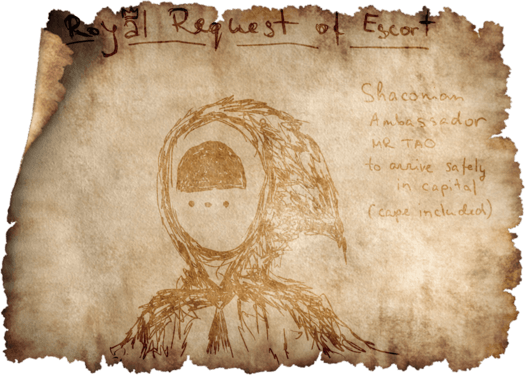 Royal Request of Escort
Shacoman
Ambassador
MR TAO
to arrive safely
in capital
(cape included)